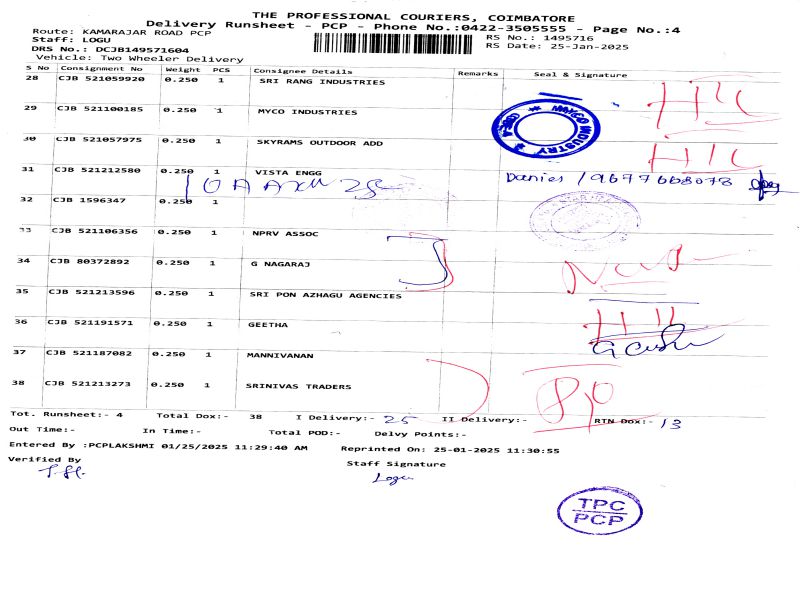 THE PROFESSIONAL COURIERS, COIMBATORE
Delivery Runsheet - PCP - Phone No.:0422-3505555 - Page No.:4
Route: KAMARAJAR ROAD PCP RS No.: 1495716
Staff: LOGU RS Date: 25-Jan-2025
DRS No.: DCJB149571604
Vehicle: Two Wheeler Delivery
S No Consignment No Weight PCS Consignee Details Remarks Seal & Signature
28 CJB 521059920 0.250 1 SRI RANG INDUSTRIES
29 CJB 521100185 0.250 1 MYCO INDUSTRIES
30 CJB 521057975 0.250 1 SKYRAMS OUTDOOR ADD
31 CJB 521212580 0.250 1 VISTA ENGG
Danies / 9677668078
32 CJB 1596347 0.250 1
33 CJB 521106356 0.250 1 NPRV ASSOC
34 CJB 80372892 0.250 1 G NAGARAJ
35 CJB 521213596 0.250 1 SRI PON AZHAGU AGENCIES
36 CJB 521191571 0.250 1 GEETHA
37 CJB 521187082 0.250 1 MANNIVANAN
38 CJB 521213273 0.250 1 SRINIVAS TRADERS
Tot. Runsheet:- 4 Total Dox:- 38 I Delivery:- 25 II Delivery:- RTN Dox:- 13
Out Time:- In Time:- Total POD:- Delvy Points:-
Entered By :PCPLAKSHMI 01/25/2025 11:29:40 AM Reprinted On: 25-01-2025 11:30:55
Verified By Staff Signature
Logu
TPC
PCP